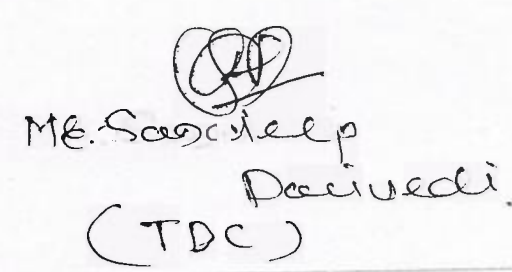 Mr. Sandeep
Dwivedi
(TDC)